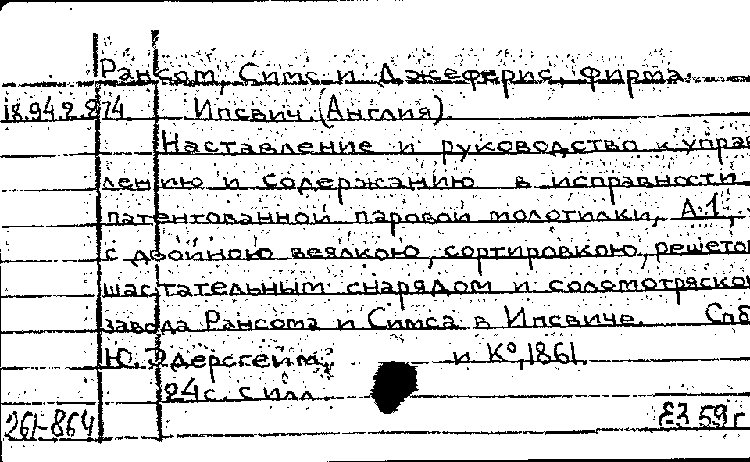 Рансом, Симс и Джеферис, фирма.
18.94.2.874 Ипсвич (Англия).
Наставление и руководство к управ
лению и содержанию в исправности
патентованной паровой молотилки, А.1,
с двойною веялкою, сортировкою, решето
шастательным снарядом и соломотряскою
завода Рансома и Симса в Ипсвиче. Спб
Ю. Эдерсгейм, и К°, 1861.
24 с. с илл.
261-864 Е3 59 г